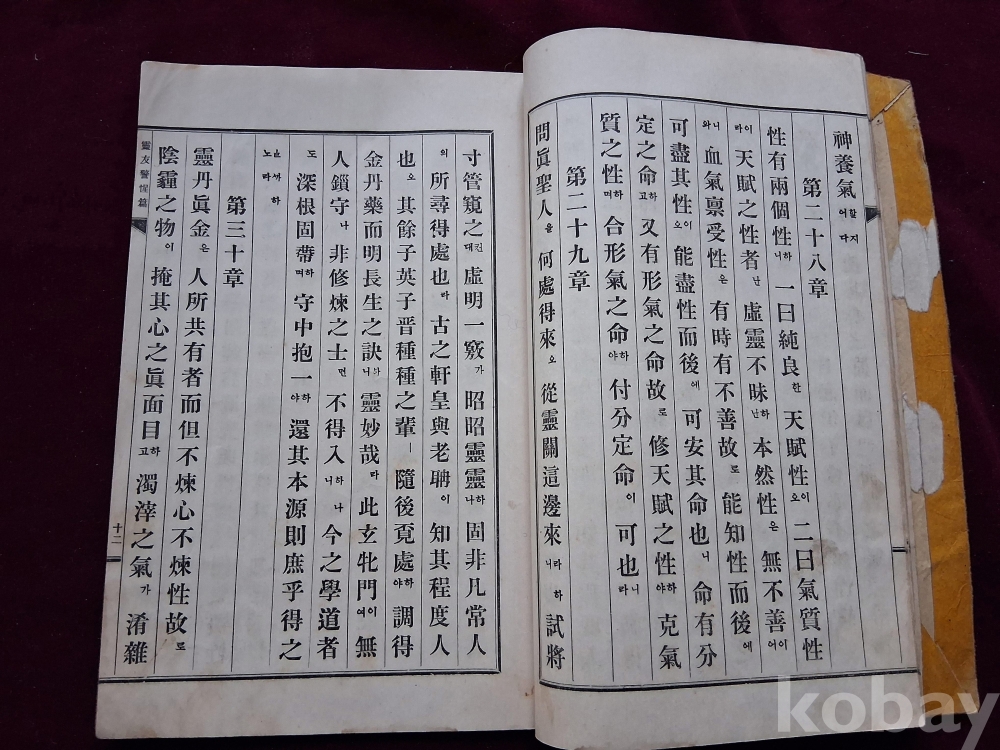 神養氣어다할지
第二十八章
性有兩個性니하一曰純良한天賦性오이二曰氣質性
라이天賦之性者난虛靈不昧난하本然性은無不善어이
와니血氣禀受性은有時有不善故로能知性而後에
可盡其性오이能盡性而後에可安其命也니命有分
定之命고하又有形氣之命故로修天賦之性야하克氣
質之性며하合形氣之命야하付分定命이可也라니
第二十九章
問眞聖人을何處得來오從靈關這邊來니라하試將
寸管窺之대虛明一竅가昭昭靈靈나하固非凡常人
의所尋得處也라古之軒皇與老聃이知其程度人
也오其餘子英子晋種種之輩ㅣ隨後覓處야하調得
金丹藥而明長生之訣니靈妙哉라此玄牝門여이無
人鎖守나非修煉之士면不得入니하나今之學道者
도深根固蔕며하守中抱一야하還其本源則庶乎得之
노라하
第三十章
靈丹眞金은人所共有者而但不煉心不煉性故로
陰霾之物이掩其心之眞面目고하濁滓之氣가淆雜
靈友警惺篇
十二
kobay